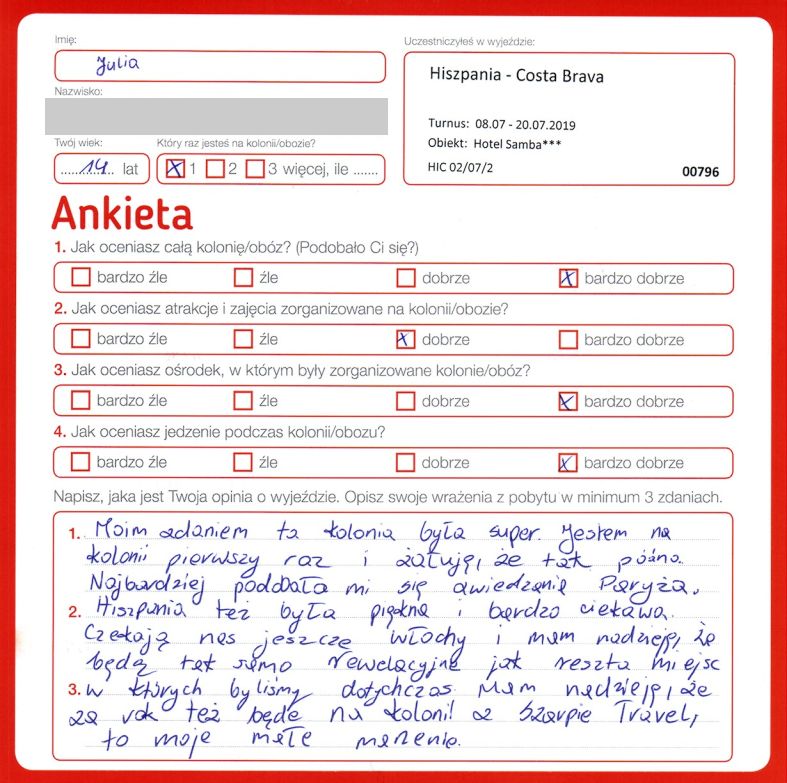 Imię:
Julia
Nazwisko:
Twój wiek:
14 lat
Który raz jesteś na kolonii/obozie?
1 2 3 więcej, ile .......
Uczestniczyłeś w wyjeździe:
Hiszpania - Costa Brava
Turnus: 08.07 - 20.07.2019
Obiekt: Hotel Samba***
HIC 02/07/2
00796
Ankieta
1. Jak oceniasz całą kolonię/obóz? (Podobało Ci się?)
bardzo źle źle dobrze bardzo dobrze
2. Jak oceniasz atrakcje i zajęcia zorganizowane na kolonii/obozie?
bardzo źle źle dobrze bardzo dobrze
3. Jak oceniasz ośrodek, w którym były zorganizowane kolonie/obóz?
bardzo źle źle dobrze bardzo dobrze
4. Jak oceniasz jedzenie podczas kolonii/obozu?
bardzo źle źle dobrze bardzo dobrze
Napisz, jaka jest Twoja opinia o wyjeździe. Opisz swoje wrażenia z pobytu w minimum 3 zdaniach.
1. Moim zdaniem ta kolonia była super. Jestem na
kolonii pierwszy raz i żałuję, że tak późno.
Najbardziej podobała mi się zwiedzanie Paryża.
2. Hiszpania też była piękna i bardzo ciekawa.
Czekają nas jeszcze Włochy i mam nadzieję, że
będą tak samo rewelacyjne jak reszta miejsc
3. w których byliśmy dotychczas Mam nadzieję, że
za rok też będe na kolonii z Szarpie Travel,
to moje małe marzenie.